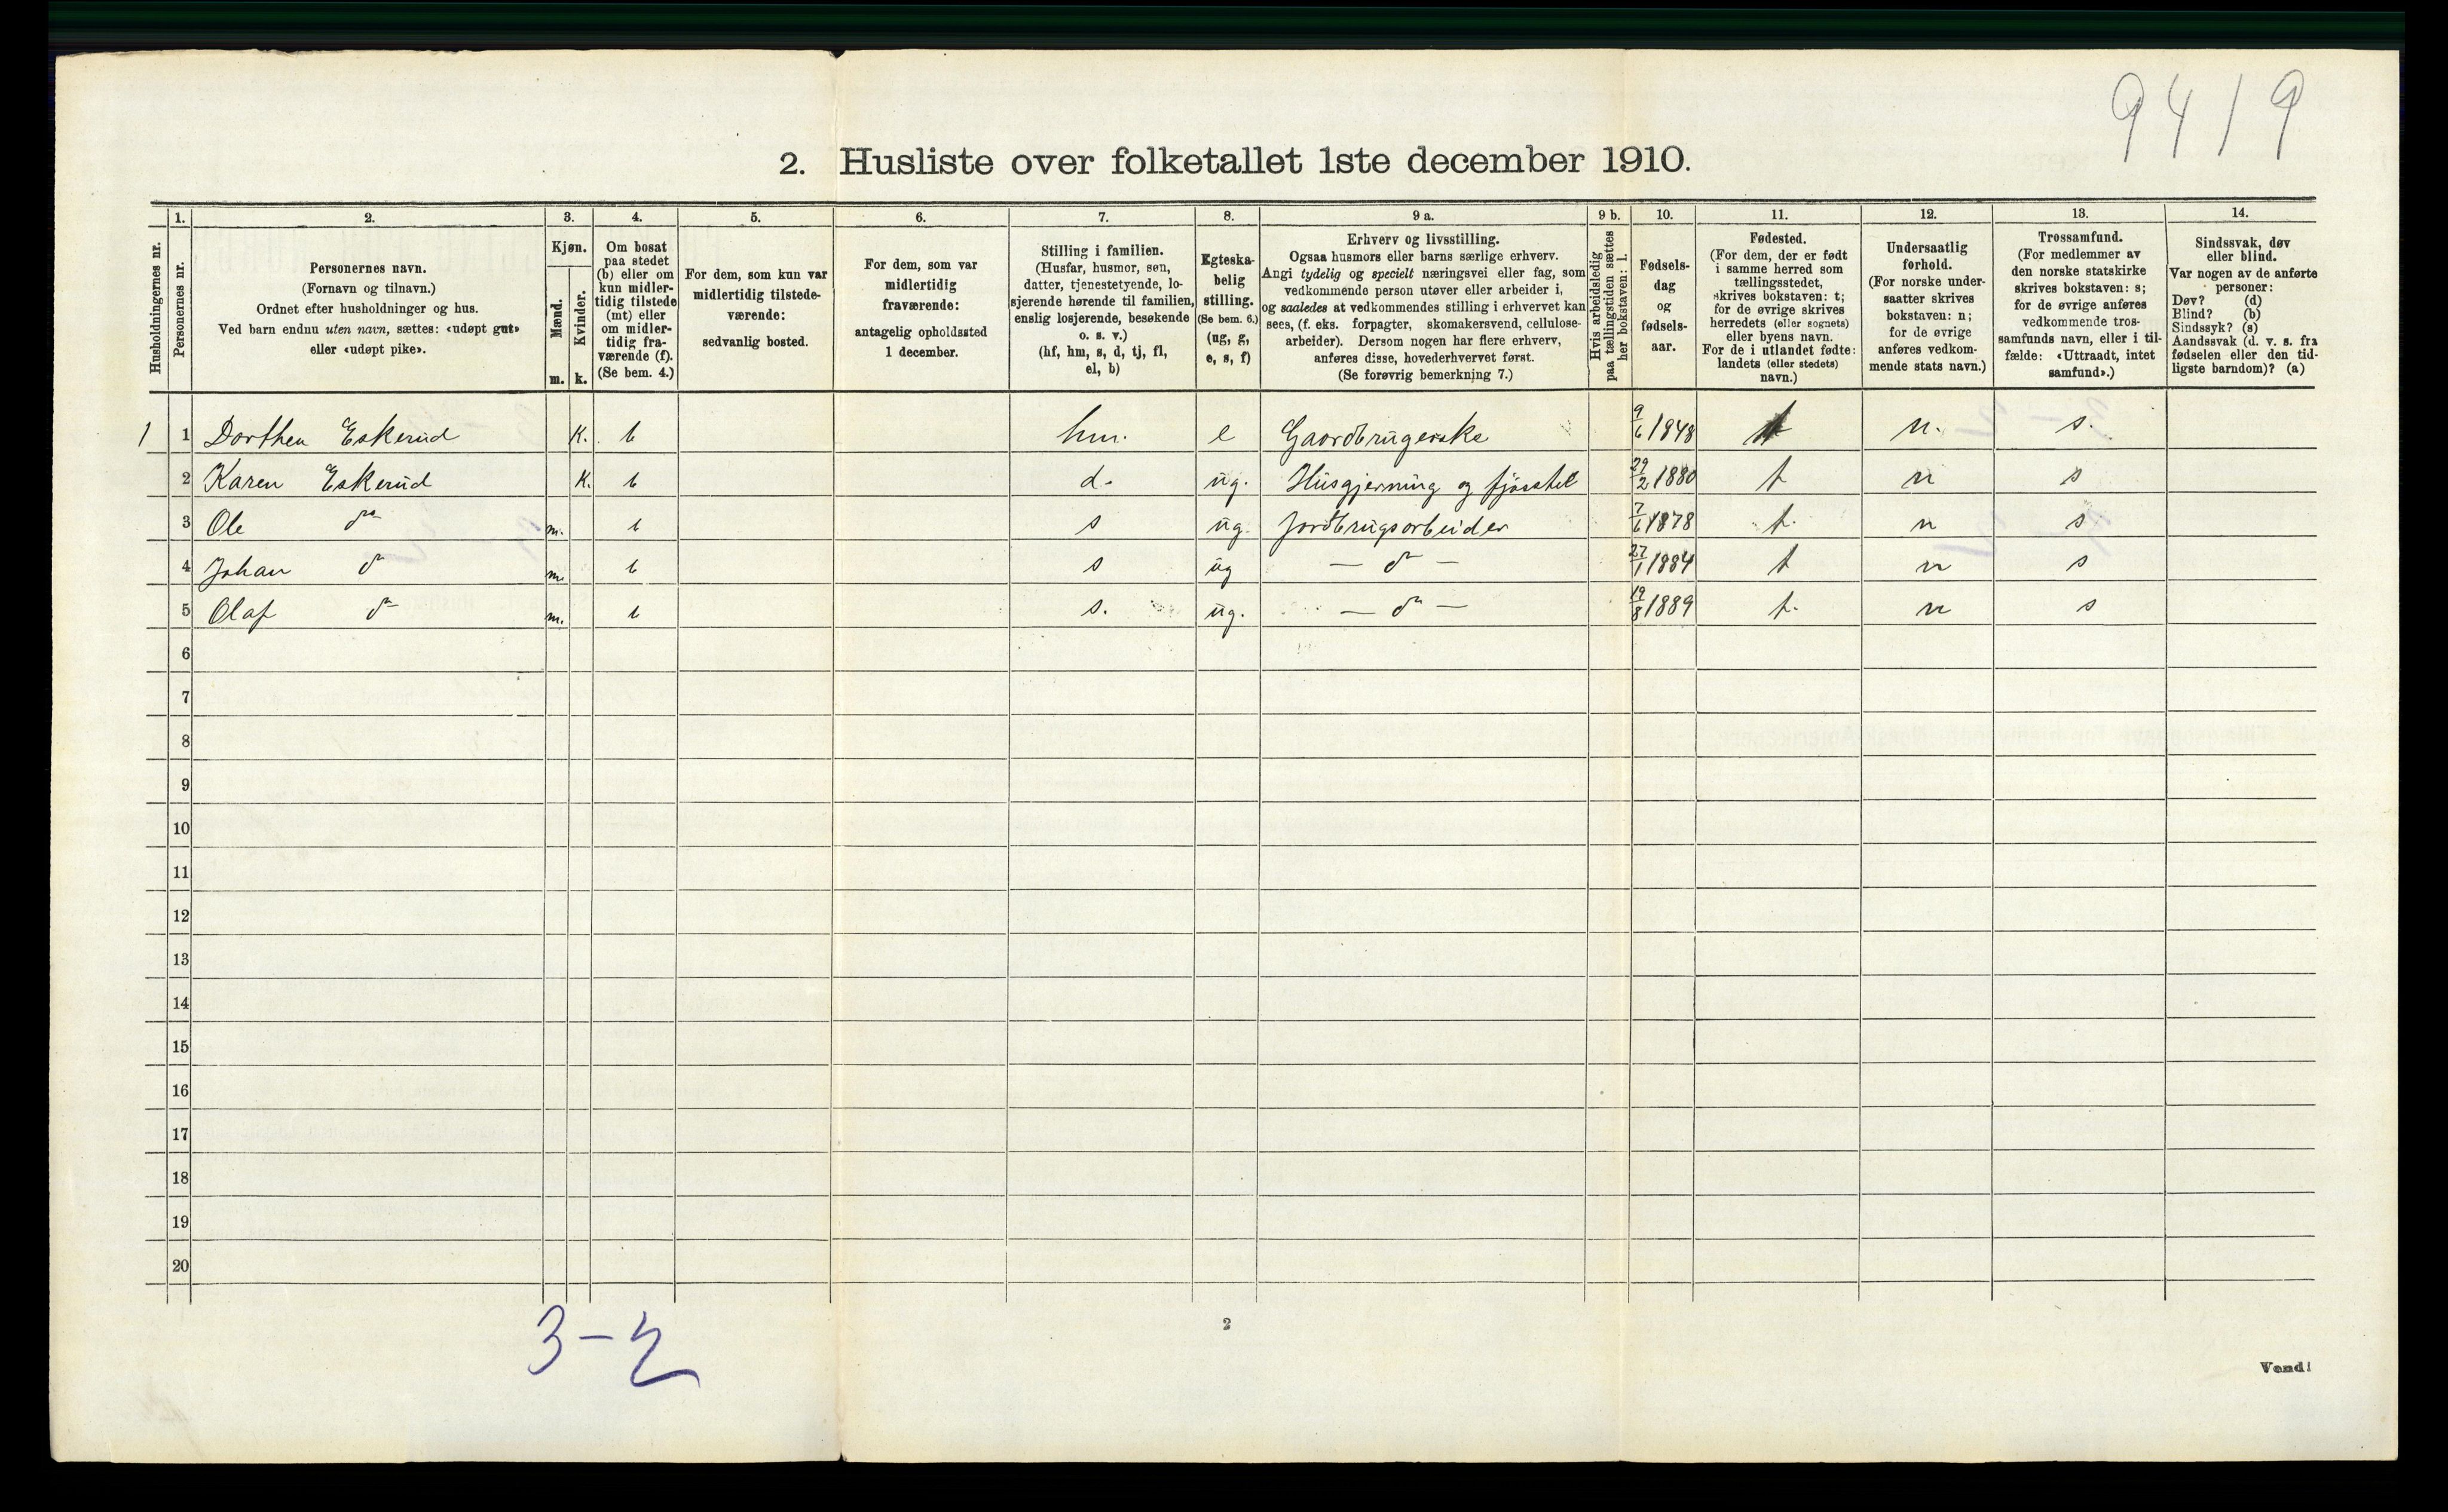 9419
2. Husliste over folketallet 1ste december 1910.
1. 2. 3. 4. 5. 6. 7. 8. 9 a. 9 b. 10. 11. 12. 13. 14.
Husholdningernes nr.
Personernes nr.
Personernes navn.
(Fornavn og tilnavn.)
Ordnet efter husholdninger og hus.
Ved barn endnu uten navn, sættes: «udøpt gut»
eller «udøpt pike».
Kjøn.
Mænd.
Kvinder.
m. k.
Om bosat
paa stedet
(b) eller om
kun midler-
tidig tilstede
(mt) eller
om midler-
tidig fra-
værende (f).
(Se bem. 4.)
For dem, som kun var
midlertidig tilstede-
værende:
sedvanlig bosted.
For dem, som var
midlertidig
fraværende:
antagelig opholdssted
1 december.
Stilling i familien.
(Husfar, husmor, søn,
datter, tjenestetyende, lo-
sjerende hørende til familien,
enslig losjerende, besøkende
o. s. v.)
(hf, hm, s, d, tj, fl,
el, b)
Egteska-
belig
stilling.
(Se bem. 6.)
(ug, g,
e, s, f)
Erhverv og livsstilling.
Ogsaa husmors eller barns særlige erhverv.
Angi tydelig og specielt næringsvei eller fag, som
vedkommende person utøver eller arbeider i,
og saaledes at vedkommendes stilling i erhvervet kan
sees, (f. eks. forpagter, skomakersvend, cellulose-
arbeider). Dersom nogen har flere erhverv,
anføres disse, hovederhvervet først.
(Se forøvrig bemerkning 7.)
Hvis arbeidsledig
paa tællingstiden sættes
her bokstaven: l.
Fødsels-
dag
og
fødsels-
aar.
Fødested.
(For dem, der er født
i samme herred som
tællingsstedet,
skrives bokstaven: t;
for de øvrige skrives
herredets (eller sognets)
eller byens navn.
For de i utlandet fødte:
landets (eller stedets)
navn.)
Undersaatlig
forhold.
(For norske under-
saatter skrives
bokstaven: n;
for de øvrige
anføres vedkom-
mende stats navn.)
Trossamfund.
(For medlemmer av
den norske statskirke
skrives bokstaven: s;
for de øvrige anføres
vedkommende tros-
samfunds navn, eller i til-
fælde: «Uttraadt, intet
samfund».)
Sindssvak, døv
eller blind.
Var nogen av de anførte
personer:
Døv? (d)
Blind? (b)
Sindssyk? (s)
Aandssvak (d. v. s. fra
fødselen eller den tid-
ligste barndom)? (a)
1 1 Dorthea Eskerud K. b hm. e Gaardbrugerske 9/6 1848 t n. s.
2 Karen Eskerud K. b d. ug. Husgjerning og fjøsstel 29/2 1880 t n s
3 Ole do m. b s ug. Jordbrugsarbeider 7/6 1878 t. n s
4 Johan do m. b s ug — do — 27/1 1884 t n s
5 Olaf do m. b s. ug. — do — 19/8 1889 t. n s
6
7
8
9
10
11
12
13
14
15
16
17
18
19
20
3-2
2
Vend!